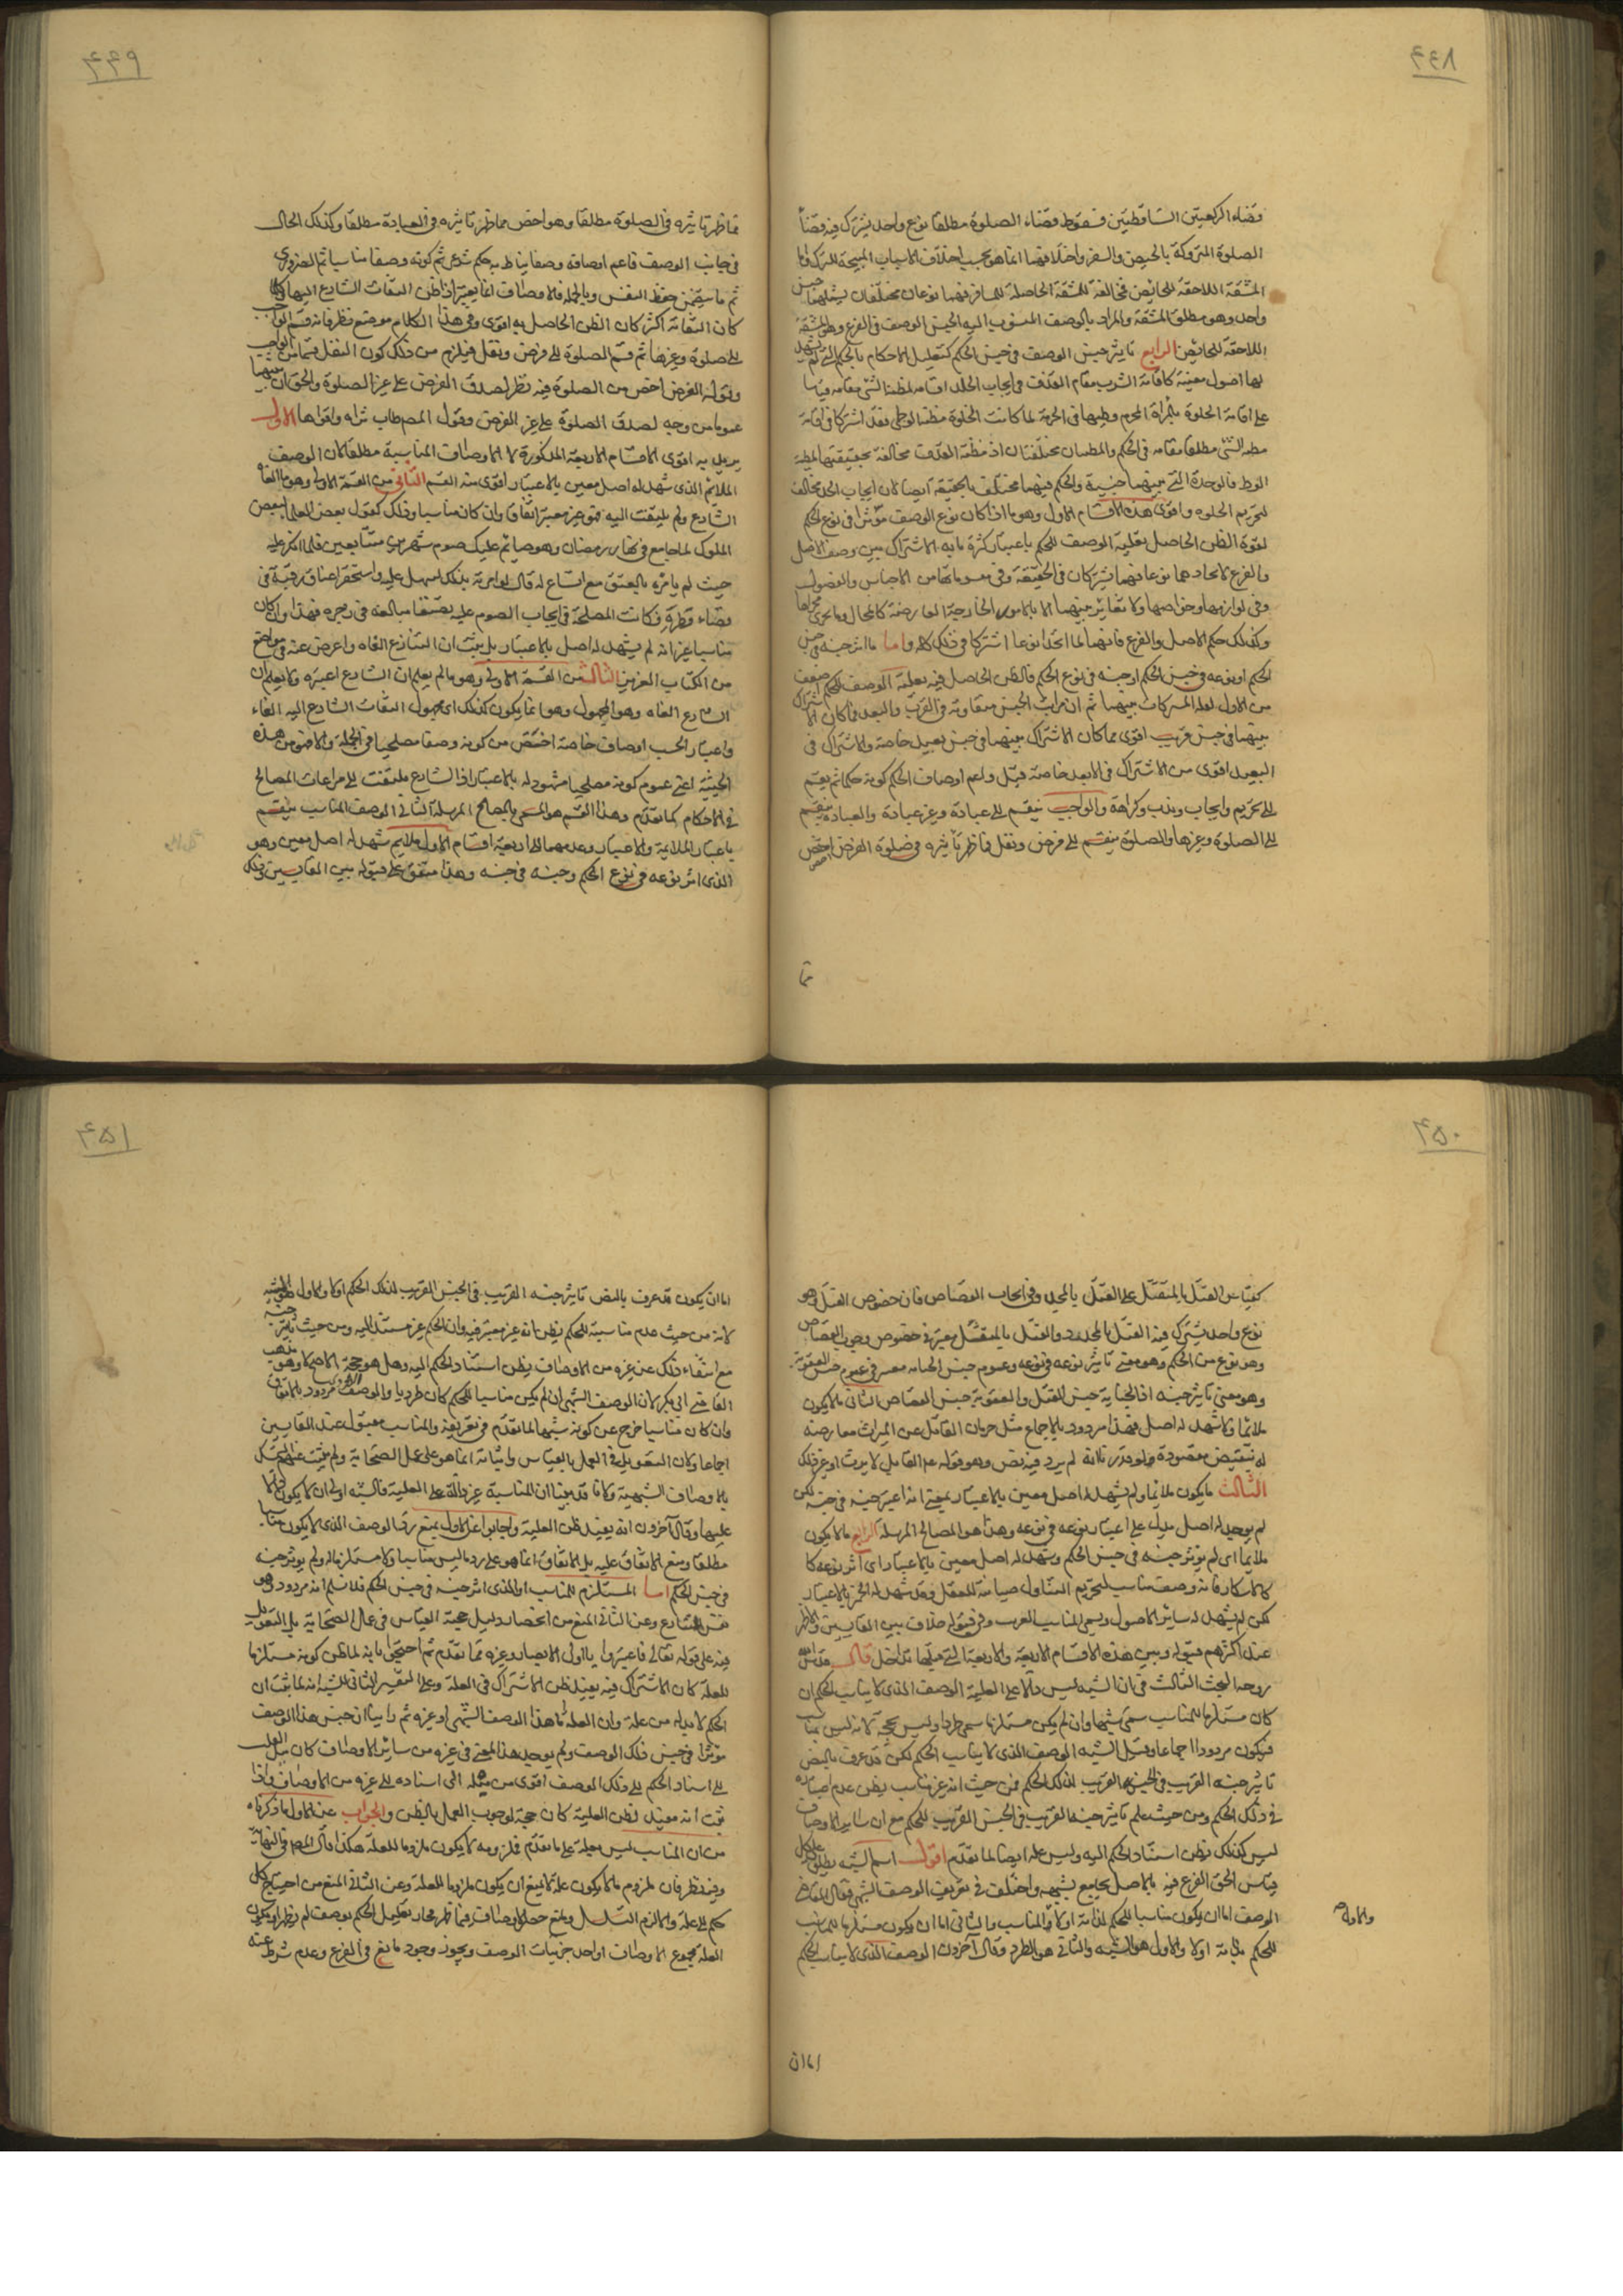 ۴۴۸
قضاء الركعتين الساقطتين فسقوط قضاء الصلوة مطلقا نوع واحد يشترك فيه قضاء
الصلوة المتروكة بالحيض والسفر واختلافهما انما هو بحسب اختلاف الاسباب المبيحة للترك واما
المشقة اللاحقة للحايض مخالفة للمشقة الحاصلة للمسافر فهما نوعان مختلفان يشملهما جنس
واحد وهو مطلق المشقة والمراد بالوصف المنسوب اليه الجنس الوصف في الفرع وهو المشقة
اللاحقة للحايض الرابع تاثير جنس الوصف في جنس الحكم كتعليل الاحكام بالحكم التي لم يشهد
لها اصول معينة كاقامة الشرب مقام القذف في ايجاب الجلد اقامة لمظنة الشئ مقامه قياسا
على اقامة الخلوة بالمراة المحرم وطيها في الحرمة لما كانت الخلوة مظنة الوطى فقد اشتركا في اقامة
مظنة الشئ مطلقا مقامه في الحكم والمظنتان مختلفتان اذ مظنة القذف مخالفة بحقيقتها لمظنة
الوطى فالوحدة التي بينهما جنسية والحكم فيهما مختلف بالحقيقة ايضا لان ايجاب الحد مخالف
لتحريم الخلوة واقوى هذه الاقسام الاول وهو ما اذا كان نوع الوصف مؤثرا في نوع الحكم
لقوة الظن الحاصل بعلية الوصف للحكم باعتبار كثرة ما به الاشتراك بين وصف الاصل
والفرع لاتحادهما نوعا فهما يشتركان في الحقيقة وفي مقوماتها من الاجناس والفصول
وفي لوازمها وخواصها ولا تغاير بينهما الا بالامور الخارجية العارضة كالمحال وما يجري مجراها
وكذلك حكم الاصل والفرع فانهما لما اتحدا نوعا اشتركا في ذلك كله واما ما اثر جنسه في جنس
الحكم او نوعه في جنس الحكم او جنسه في نوع الحكم فالظن الحاصل فيه بعلية الوصف للحكم اضعف
من الاول لقلة المشتركات بينهما ثم ان مراتب الجنس متفاوتة في القرب والبعد فما كان الاشتراك
بينهما في جنس قريب اقوى مما كان الاشتراك بينهما في جنس بعيد خاصة والاشتراك في
البعيد اقوى من الاشتراك في الابعد خاصة قيل واعم اوصاف الحكم كونه حكما ثم ينقسم
الى تحريم وايجاب وندب وكراهة والواجب ينقسم الى عبادة وغير عبادة والعبادة ينقسم
الى الصلوة وغيرها والصلوة ينقسم الى فرض ونفل فما ظهر تاثيره في صلوة الفرض اخص
مما
۴۴۹
مما ظهر تاثيره في الصلوة مطلقا وهو اخص مما ظهر تاثيره في العبادة مطلقا وكذلك الحال
في جانب الوصف فاعم اوصافه وصفا يناط به حكم شرعي ثم كونه وصفا مناسبا ثم الضروري
ثم ما يتضمن حفظ النفس وبالجملة فالاوصاف انما يعتبر اذا ظن التفات الشارع اليها وكلما
كان التفاته اكثر كان الظن الحاصل به اقوى وفي هذا الكلام موضع نظر فانه قسم الواجب
الى صلوة وغيرها ثم قسم الصلوة الى فرض ونفل فيلزم من ذلك كون النفل قسما من الواجب
وقوله الفرض اخص من الصلوة فيه نظر لصدق الفرض على غير الصلوة والحق ان بينهما
عموما من وجه لصدق الصلوة على غير الفرض وقول المصطاب ثراه واقواها الاول
يريد به اقوى الاقسام الاربعة المذكورة لا الاوصاف المناسبة مطلقا لان الوصف
الملائم الذي شهد له اصل معين بالاعتبار اقوى منه القسم الثاني من القسمة الاولى وهو ما الغاه
الشارع ولم يلتفت اليه فهو غير معتبر اتفاقا وان كان مناسبا وذلك كقول بعض العلماء لبعض
الملوك لما جامع في نهار رمضان وهو صائم عليك صوم شهرين متتابعين فلما انكر عليه
حيث لم يامره بالعتق مع اتساع له قال لو امرته بذلك لسهل عليه واستحقر اعتاق رقبة في
قضاء وطره فكانت المصلحة في ايجاب الصوم عليه بصفتها مبالغة في زجره فهذا وان كان
مناسبا غير انه لم يشهد له اصل بالاعتبار بل يثبت ان الشارع الغاه واعرض عنه في مواضع
من الكتاب العزيز الثالث من القسمة الاولى وهو ما لم يعلم ان الشارع اعتبره ولا يعلم ان
الشارع الغاه وهو المجهول وهو انما يكون كذلك اي مجهول التفات الشارع اليه الغاء
واعتبارا بحسب اوصاف خاصة اخص من كونه وصفا مصلحيا في الجملة والا فهو من هذه
الحيثية اعني عموم كونه مصلحيا مشهود له بالاعتبار اذ الشارع ملتفت الى مراعات المصالح
في الاحكام كما تقدم وهذا القسم هو المسمى بالمصالح المرسلة الثاني الوصف المناسب ينقسم
باعتبار الملايمة والاعتبار وعدمهما الى اربعة اقسام الاول ملايم شهد له اصل معين وهو
الذي اثر نوعه في نوع الحكم وجنسه في جنسه وهذا متفق على قبوله بين القايسين وذلك
۴۵۰
كقياس القتل بالمثقل على القتل بالمحدد وفي ايجاب القصاص فان خصوص القتل وهو
نوع واحد يشترك فيه القتل بالمحدد والقتل بالمثقل معتبر في خصوص وجوب القصاص
وهو نوع من الحكم وهو معنى تاثير نوعه في نوعه وعموم جنس الجناية معتبر في عموم جنس العقوبة
وهو معنى تاثير جنسه اذ الجناية جنس للقتل والعقوبة جنس القصاص الثاني ما لا يكون
ملائما ولا شهد له اصل فهذا مردود بالاجماع مثل حرمان القاتل عن الميراث معارضة
له بنقيض مقصوده فلو قدر انه لم يرد فيه نص وهو قوله عم القاتل لا يرث او غير ذلك
الثالث ما يكون ملائما ولم يشهد له اصل معين بالاعتبار بمعنى انه اعتبر جنسه في جنسه لكن
لم يوجد له اصل يدل على اعتبار نوعه في نوعه وهذا هو المصالح المرسلة الرابع ما لا يكون
ملائما اي لم يؤثر جنسه في جنس الحكم وشهد له اصل معين بالاعتبار اي اثر نوعه كا
كالاسكار فانه وصف مناسب لتحريم التناول صيانة للعقل وقد شهد له الخمر بالاعتبار
لكن لم يشهد له سائر الاصول ويسمى المناسب الغريب وفي قبوله خلاف بين القايسين والاظهر
عند اكثرهم قبوله وبين هذه الاقسام الاربعة والاربعة التي قبلها تداخل قال قدس الله
روحه البحث الثالث في ان الشبه ليس دالا على العلية الوصف الذي لا يناسب الحكم ان
كان مستلزما للمناسب سمى شبها وان لم يكن مستلزما سمى طردا وليس بحجة لانه ليس مناسب
فيكون مردودا اجماعا وقيل الشبه الوصف الذي لا يناسب الحكم لكن قد عرف بالنص
تاثير جنسه القريب في الجنس القريب لذلك الحكم فمن حيث انه غير مناسب يظن عدم اعتباره
في ذلك الحكم ومن حيث علم تاثير جنسه القريب في الجنس القريب للحكم مع ان ساير الاوصاف
ليس كذلك يظن استناد الحكم اليه وليس علة ايضا لما تقدم اقول اسم الشبه يطلق على كل
قياس الحق الفرع فيه بالاصل بجامع يشبهه واختلف في تعريف الوصف الشبهي فقال القاضي
الوصف اما ان يكون مناسبا للحكم لذاته اولا والاول المناسب والثاني اما ان يكون مستلزما للمناسب
للحكم بذاته اولا والاول هو الشبه والثاني هو الطرد وقال آخرون الوصف الذي لا يناسب الحكم
اما ان
۴۵۱
اما ان يكون قد عرف بالنص تاثير جنسه القريب في الجنس القريب لذلك الحكم اولا والاول هو الشبه
لانه من حيث عدم مناسبته للحكم يظن انه غير معتبر فيه وان الحكم غير مستند اليه ومن حيث تاثير جنسه
مع انتفاء ذلك عن غيره من الاوصاف يظن استناد الحكم اليه وهل هو حجة ام لا
القاضي ابي بكر لان الوصف الشبهي ان لم يكن مناسبا للحكم كان طرديا والوصف الطردي مردود بالاتفاق
وان كان مناسبا خرج عن كونه شبهيا لما تقدم في تعريفه والمناسب مقبول عند القايسين
اجماعا ولان التعويل في العمل بالقياس واثباته انما هو على عمل الصحابة ولم يثبت عنهم التمسك
بالاوصاف الشبهية ولانا قد بينا ان المناسبة غير دالة على العلية فالشبه اولى ان لا يكون دالا
عليها وقال آخرون انه يفيد ظن العلية واجابوا عن الاول بمنع رد الوصف الذي لا يكون مناسبا
مطلقا ومنع الاتفاق عليه بل الاتفاق انما هو على رد ما ليس مناسبا ولا مستلزما له ولم يؤثر جنسه
في جنس الحكم اما المستلزم للمناسب او الذي اثر جنسه في جنس الحكم فلا نسلم انه مردود وهو
نفس النزاع وعن الثاني المنع من انحصار دليل حجية القياس في عمل الصحابة بل التعويل
فيه على قوله تعالى فاعتبروا يا اولى الابصار وغيره مما تقدم ثم احتج بانه لما ظن كونه مستلزما
للعلة كان الاشتراك فيه يفيد ظن الاشتراك في العلة وعلى التفسير الثاني للشبه انه لما ثبت ان
الحكم لا بد له من علة وان العلة اما هذا الوصف الشبهي او غيره ثم راينا ان جنس هذا الوصف
مؤثرا في جنس ذلك الوصف ولم يوجد هذا المعنى في غيره من سائر الاوصاف كان ميل القلب
الى اسناد الحكم الى ذلك الوصف اقوى من ميله الى اسناده الى غيره من الاوصاف واذا
ثبت انه مفيد لظن العلية كان حجة لوجوب العمل بالظن والجواب عن الاول ما ذكرناه
من ان المناسب ليس بعلة على ما تقدم فملزومه لا يكون ملزوما للعلة هكذا قال المصنف في النهاية
وفيه نظر فان ملزوم ما لا يكون علة لا يمنع ان يكون ملزوما للعلة وعن الثاني المنع من احتياج كل
حكم الى علة والا لزم التسلسل ويمنع حصر الاوصاف فيما ظهر فجاز تعليل الحكم بوصف لم يظهر او يكون
العلة مجموع الاوصاف او احد جزئيات الوصف ويجوز وجود مانع في الفرع وعدم شرط عنه